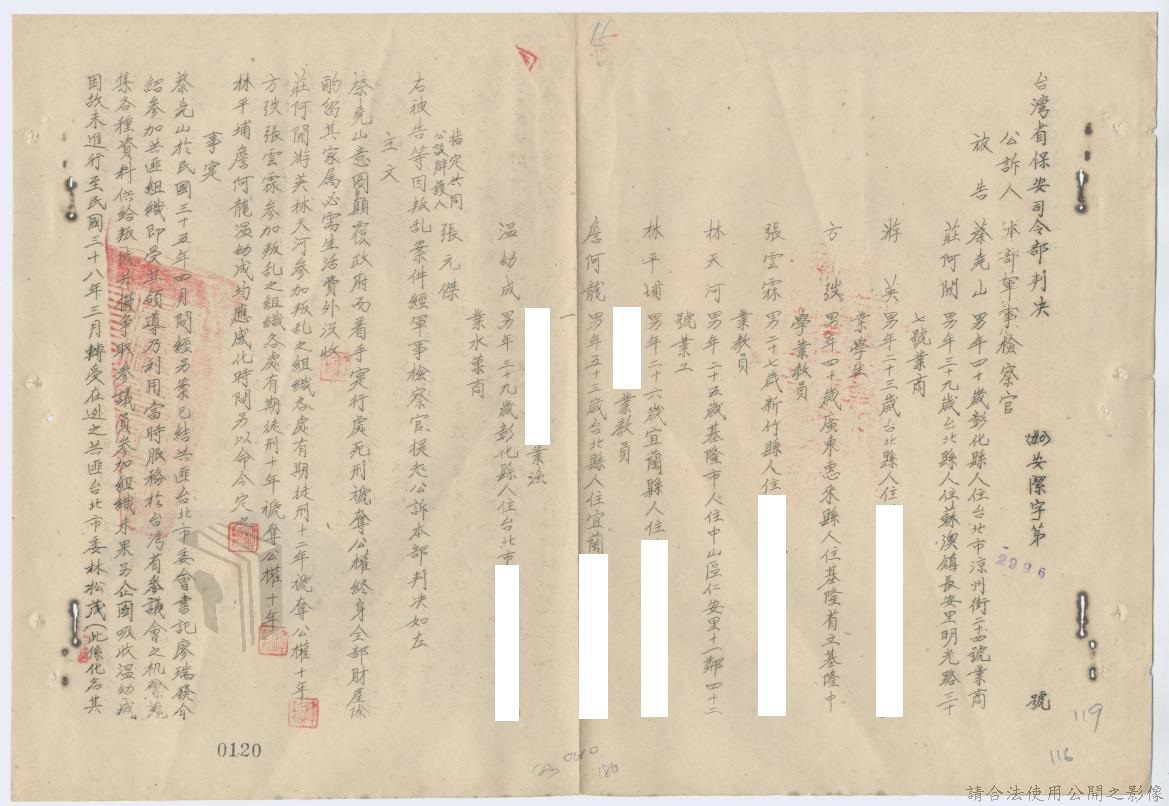 台灣省保安司令部判决
(40)安潔字第2996號
公訴人 本部軍事檢察官
被告 蔡堯山 男年四十歲彰化縣人住台北市涼州街二十四號業商
莊阿開 男年三十九歲台北縣人住蘇澳鎮長安里明光路三十
七號業商
游英 男年二十三歲台北縣人住
業學生
方弢 男年四十歲廣東惠來縣人住基隆省立基隆中
學業教員
張雲霖 男二十七歲新竹縣人住
業教員
林天河 男年二十五歲基隆市人住中山區仁安里十一鄰四十二
號業工
林平埔 男年二十六歲宜蘭縣人住
業教員
詹阿龍 男年五十三歲台北縣人住宜蘭
一 業漁
溫幼成 男年三十九歲彰化縣人住台北市
業水菓商
指定共同
公設辯護人 張元傑
右被告等因叛乱案件經軍事檢察官提起公訴本部判决如左
主文
蔡堯山意圖顛覆政府而着手实行處死刑褫奪公權終身全部財産除
酌留其家属必需生活費外没收
莊阿開游英林天河參加叛乱之組織各處有期徒刑十二年褫奪公權十年
方弢張雲霖參加叛乱之組織各處有期徒刑十年褫奪公權十年
林平埔詹阿龍溫幼成均應感化時間另以命令定之
事实
蔡堯山於民國三十五年四月間經另案已結共匪台北市委會書記廖瑞發介
紹參加共匪組織即受其領導乃利用當時服務於台湾省參議會之机會蒐
集各種資料供給叛徒并擬爭取參議員參加組織未果另企圖吸收溫幼成
因故未進行至民國三十八年三月轉受在逃之共匪台北市委林松茂(此係化名其
0120
119
116
請合法使用公開之影像